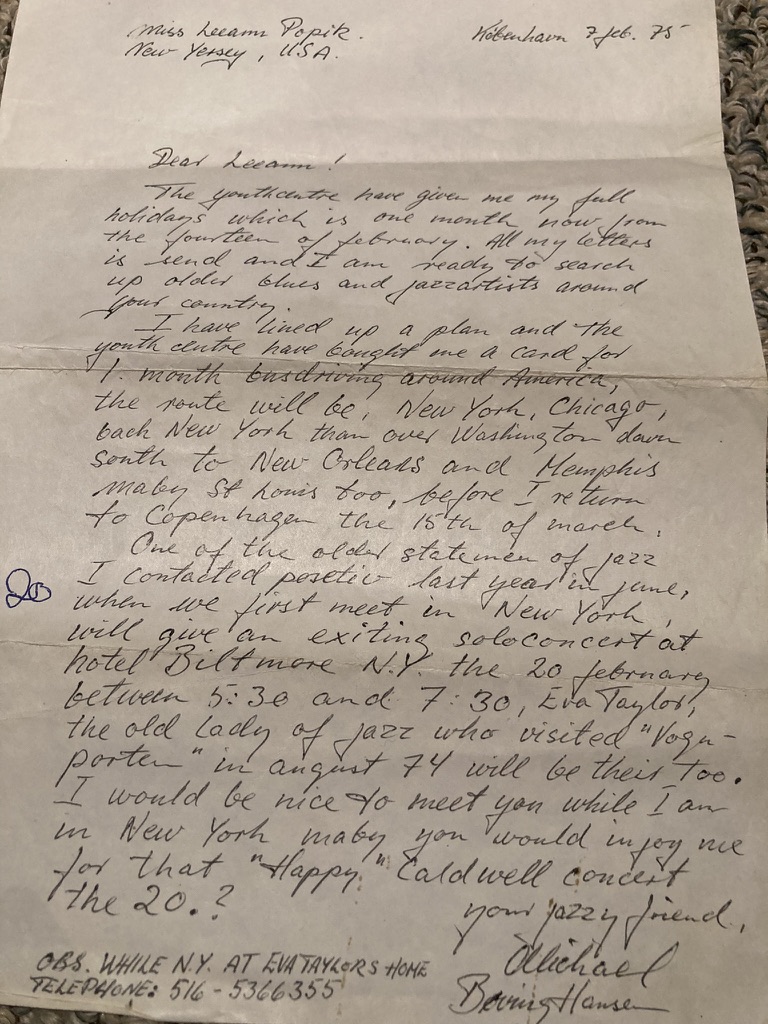 Miss Leeann Popik.
København 7 feb. 75
New Yersey, USA.
Dear Leeann!
The youthcentre have given me my full
holidays which is one month now from
the fourteen of february. All my letters
is send and I am ready to search
up older blues and jazzartists around
your country.
I have lined up a plan and the
youth centre have bought me a card for
1. month busdriving around America,
the route will be, New York, Chicago,
back New York than over Washington down
south to New Orleans and Memphis
maby St Louis too, before I return
to Copenhagen the 15th of march.
One of the older statemen of jazz
I contacted posetiv last year in june,
when we first meet in New York,
will give an exiting soloconcert at
hotel Biltmore N.Y. the 20 february
between 5:30 and 7:30, Eva Taylor,
the old lady of jazz who visited "Vogn-
porten" in august 74 will be their too.
I would be nice to meet you while I am
in New York maby you would injoy me
for that "Happy" Caldwell concert
the 20.?
your jazzy friend,
Michael
Boving Hansen
OBS. WHILE N.Y. AT EVA TAYLORS HOME
TELEPHONE: 516-5366355